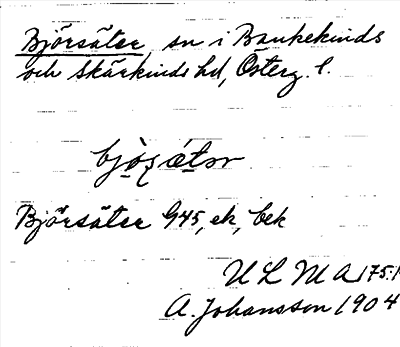 Björsäter sn i Bankekinds
och Skärkinds hd, Österg. l.
Björsäter G45, ek, bek
ULMA 175:1
A. Johansson 1904